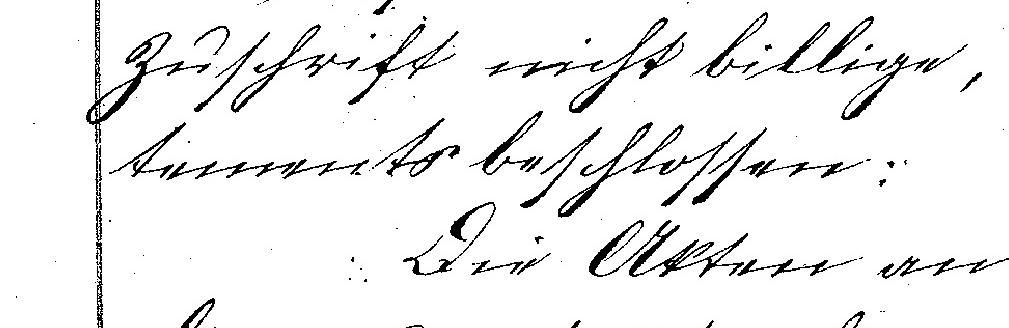 Zuschrift nicht billige,
tements beschlossen:
Die Akten an